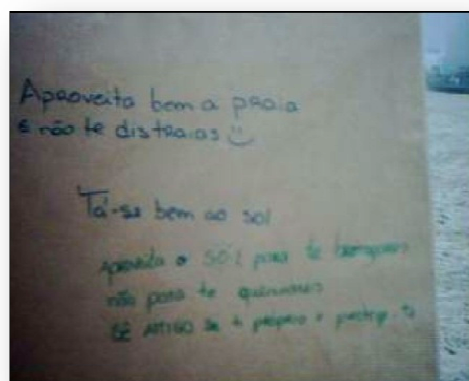 Aproveita bem a praia
e não te distraias :)
Tá-se bem ao sol
Aproveita o SOL para te bronzeares
não para te queimares
SÊ AMIGO de ti próprio e protege-te